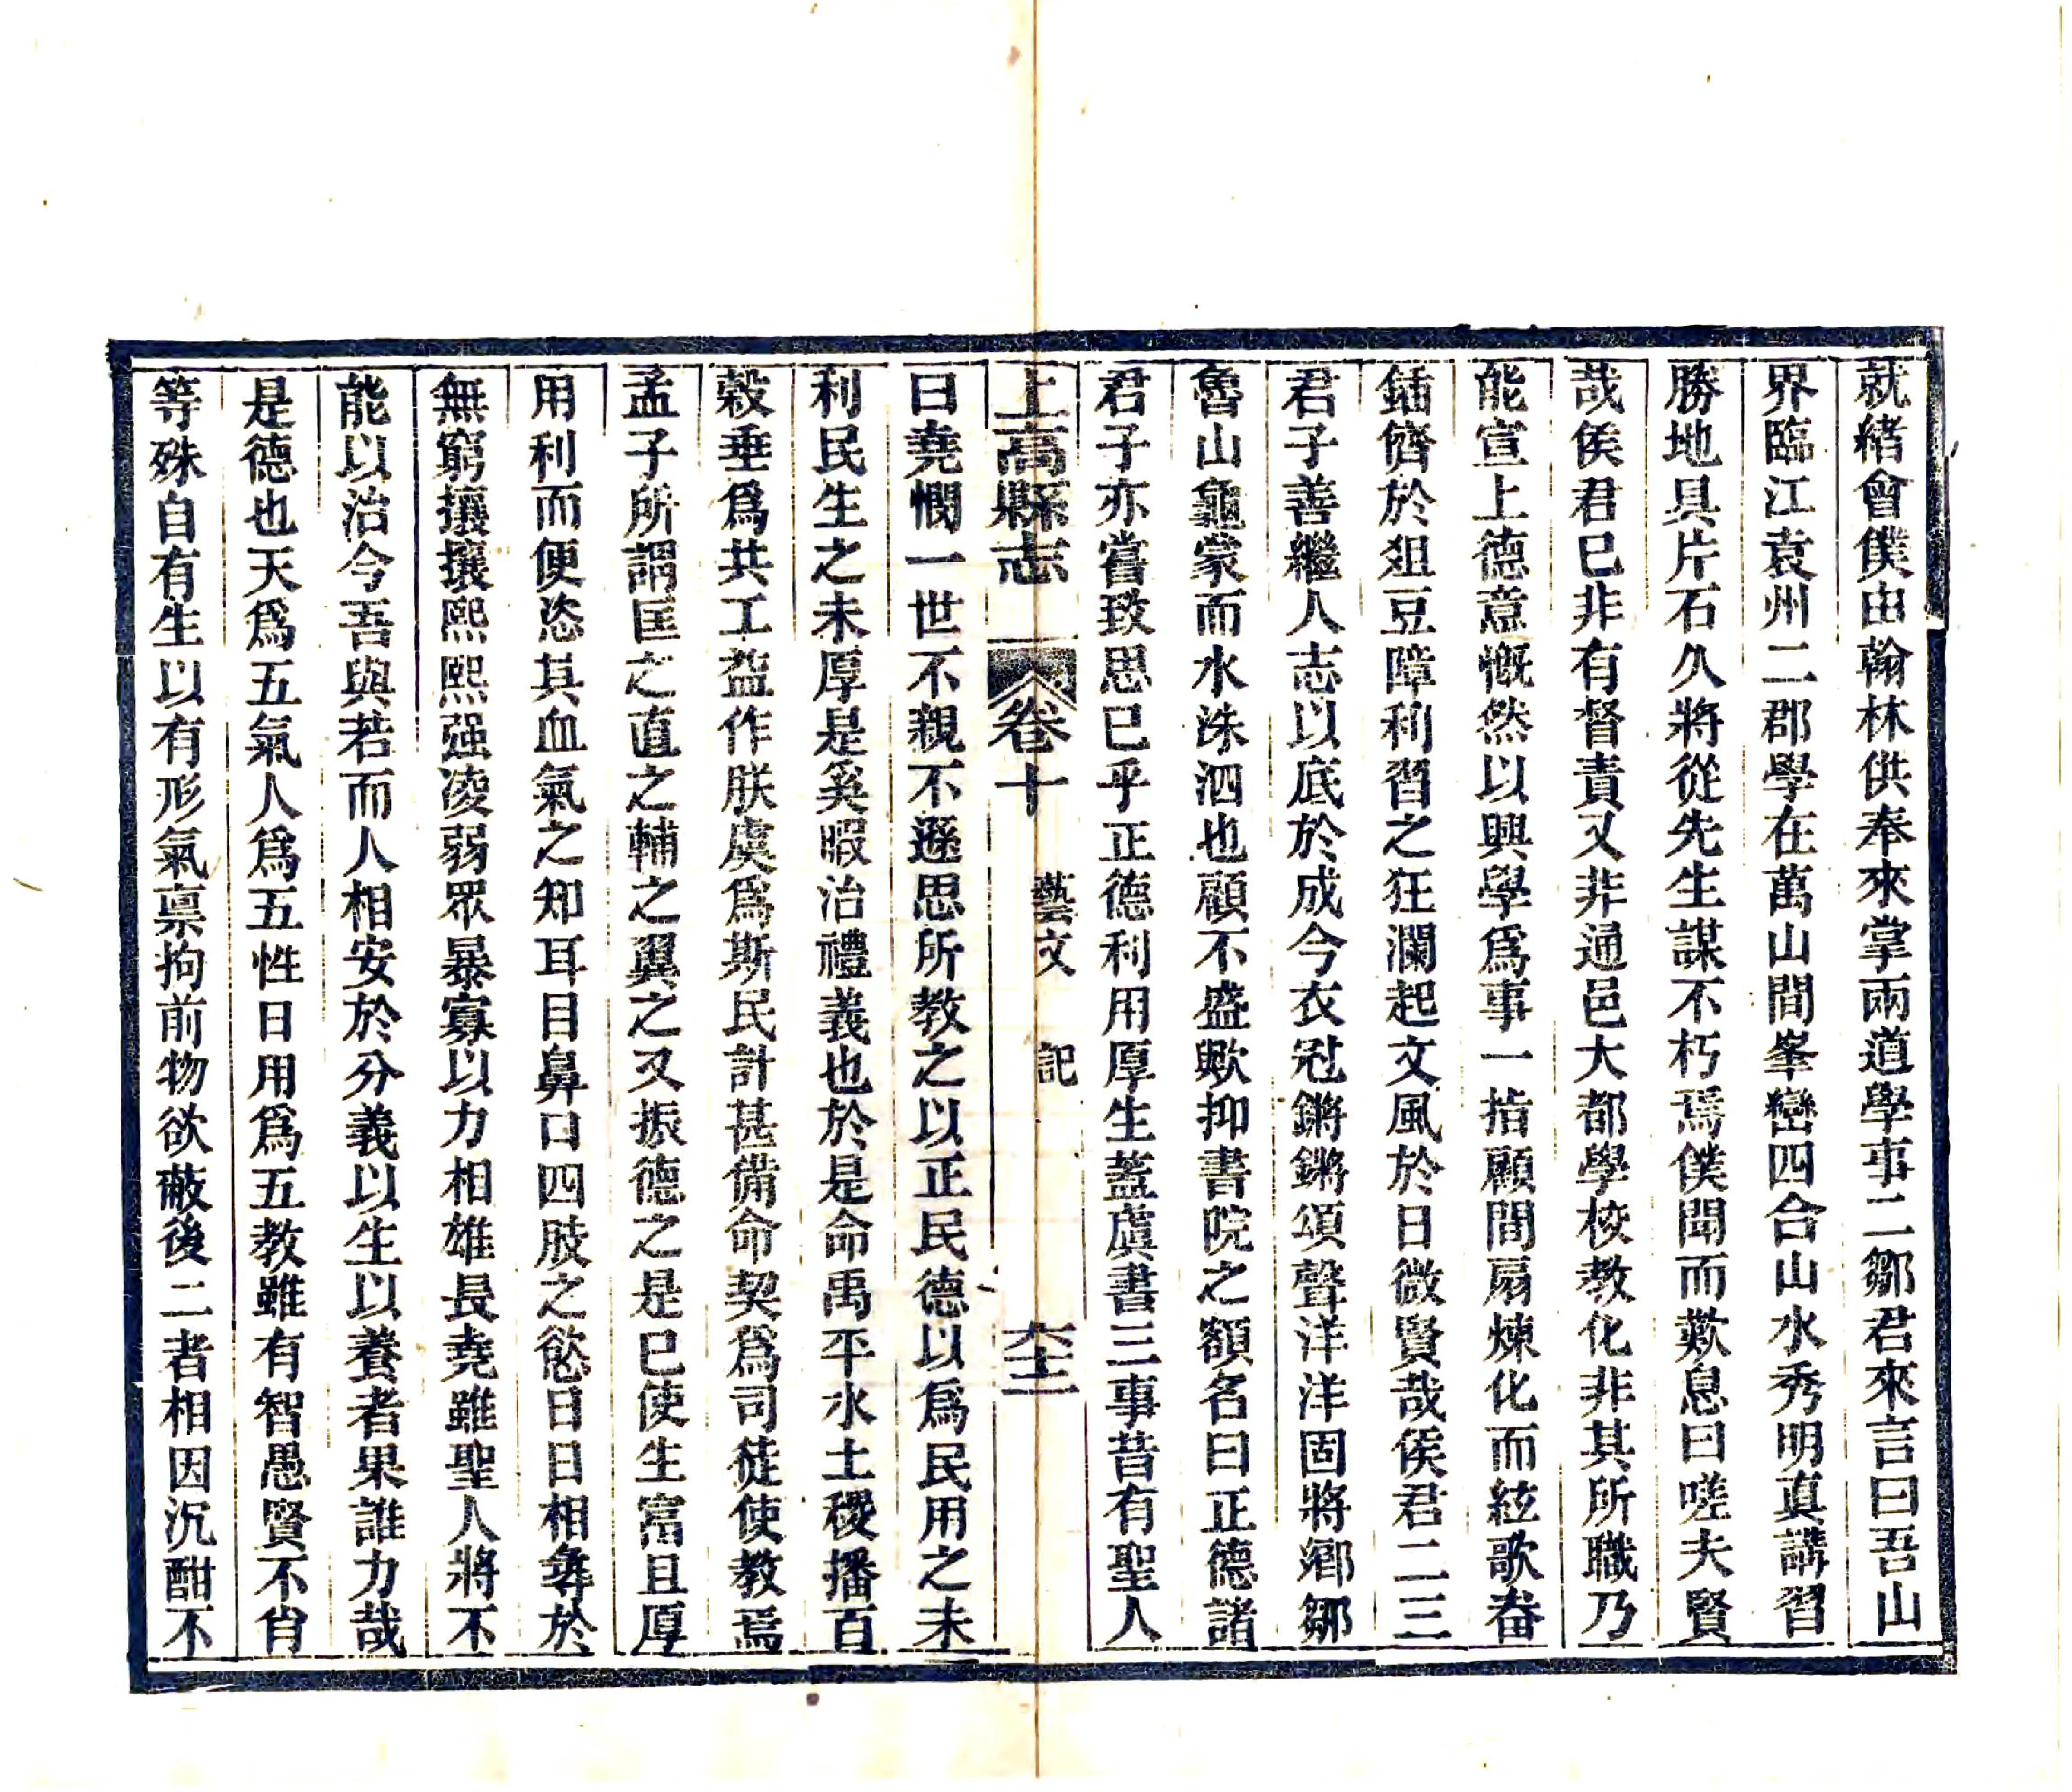 就緒會僕由翰林供奉來掌兩道學事二鄒君來言曰吾山
界臨江袁州二郡學在萬山間峯巒四合山水秀明真講習
勝地具片石久將從先生謀不朽焉僕聞而歎息曰嗟夫賢
哉侯君已非有督責又非通邑大都學校教化非其所職乃
能宣上德意慨然以興學爲事一指顧間扇煉化而絃歌畚
鍤儕於俎豆障利習之狂瀾起文風於日微賢哉侯君二三
君子善繼人志以底於成今衣冠鏘鏘頌聲洋洋固將鄉鄒
魯山龜蒙而水洙泗也顧不盛歟抑書院之額名曰正德諸
君子亦嘗致思已乎正德利用厚生蓋虞書三事昔有聖人
上高縣志 卷十 藝文 記 六十二
曰堯憫一世不親不遜思所教之以正民德以爲民用之未
利民生之未厚是奚暇治禮義也於是命禹平水土稷播百
穀垂爲共工益作朕虞爲斯民計甚備命契爲司徒使教焉
孟子所謂匡之直之輔之翼之又振德之是已使生富且厚
用利而便恣其血氣之知耳目鼻口四肢之慾日日相彝於
無窮攘攘熙熙强凌弱眾暴寡以力相雄長堯雖聖人將不
能以治今吾與若而人相安於分義以生以養者果誰力哉
是德也天爲五氣人爲五性日用爲五教雖有智愚賢不肖
等殊自有生以有形氣禀拘前物欲蔽後二者相因沉酣不